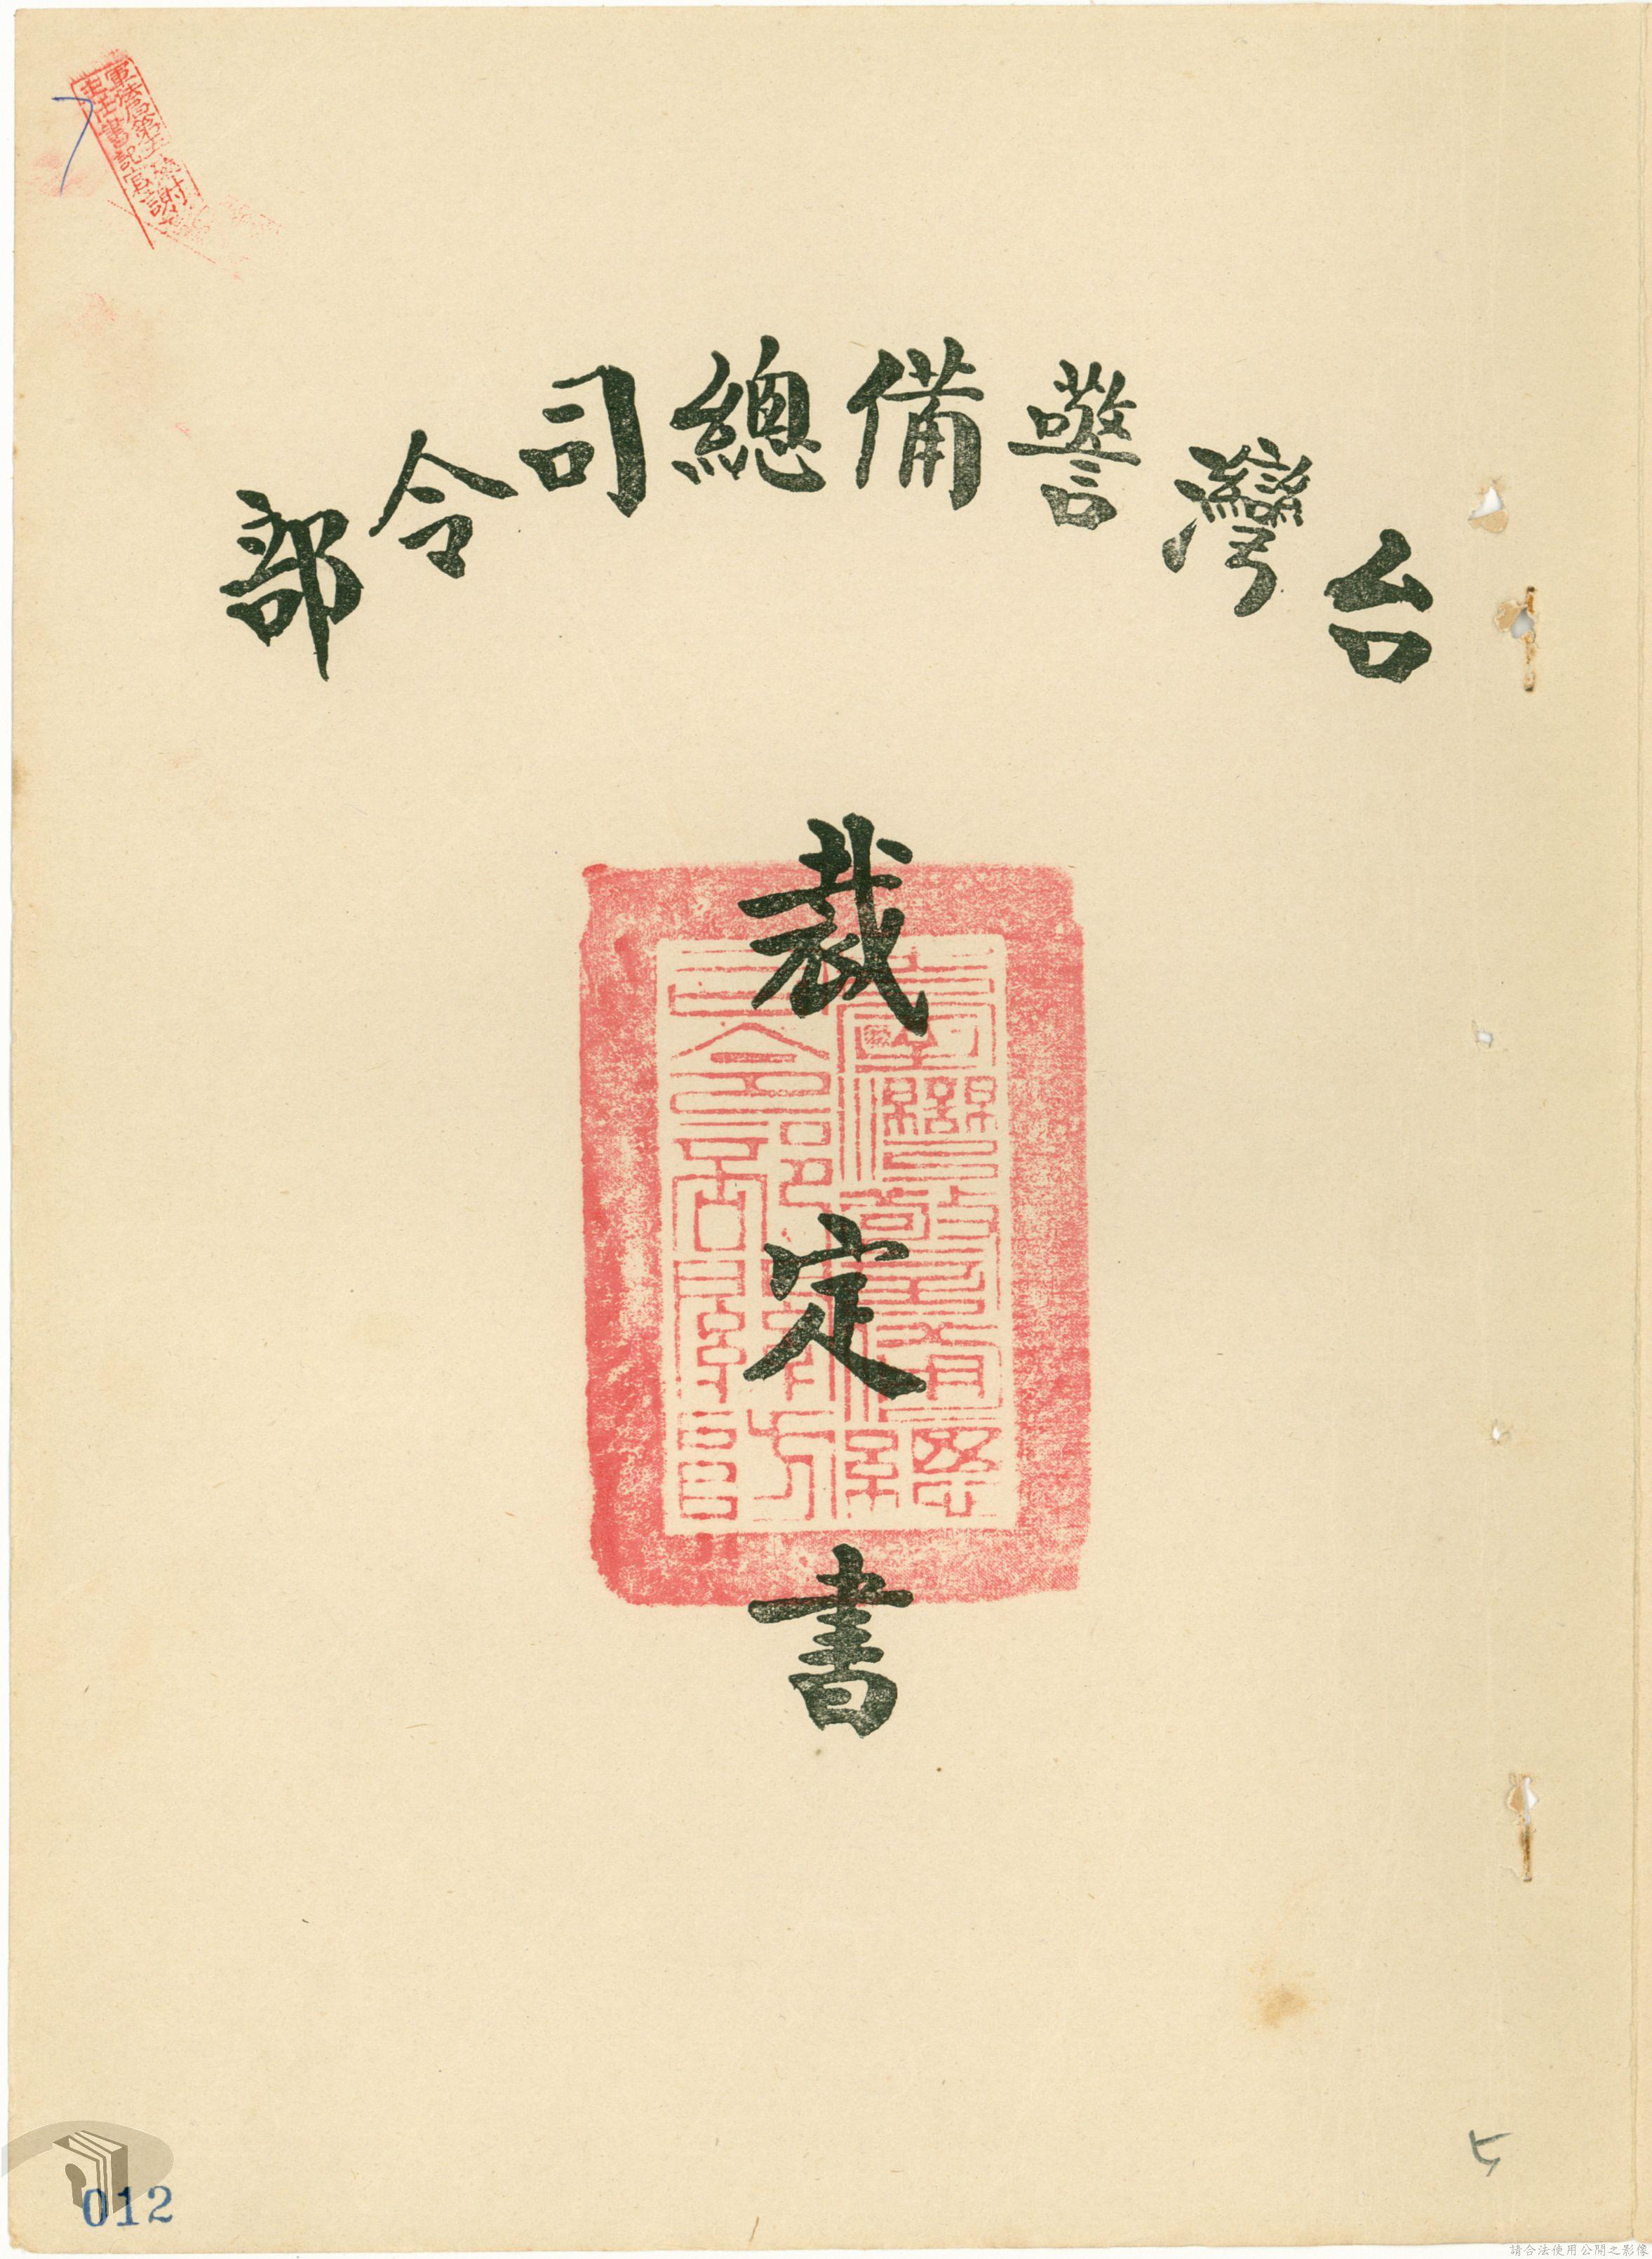 台灣警備總司令部
裁定書
012
請合法使用公開之影像